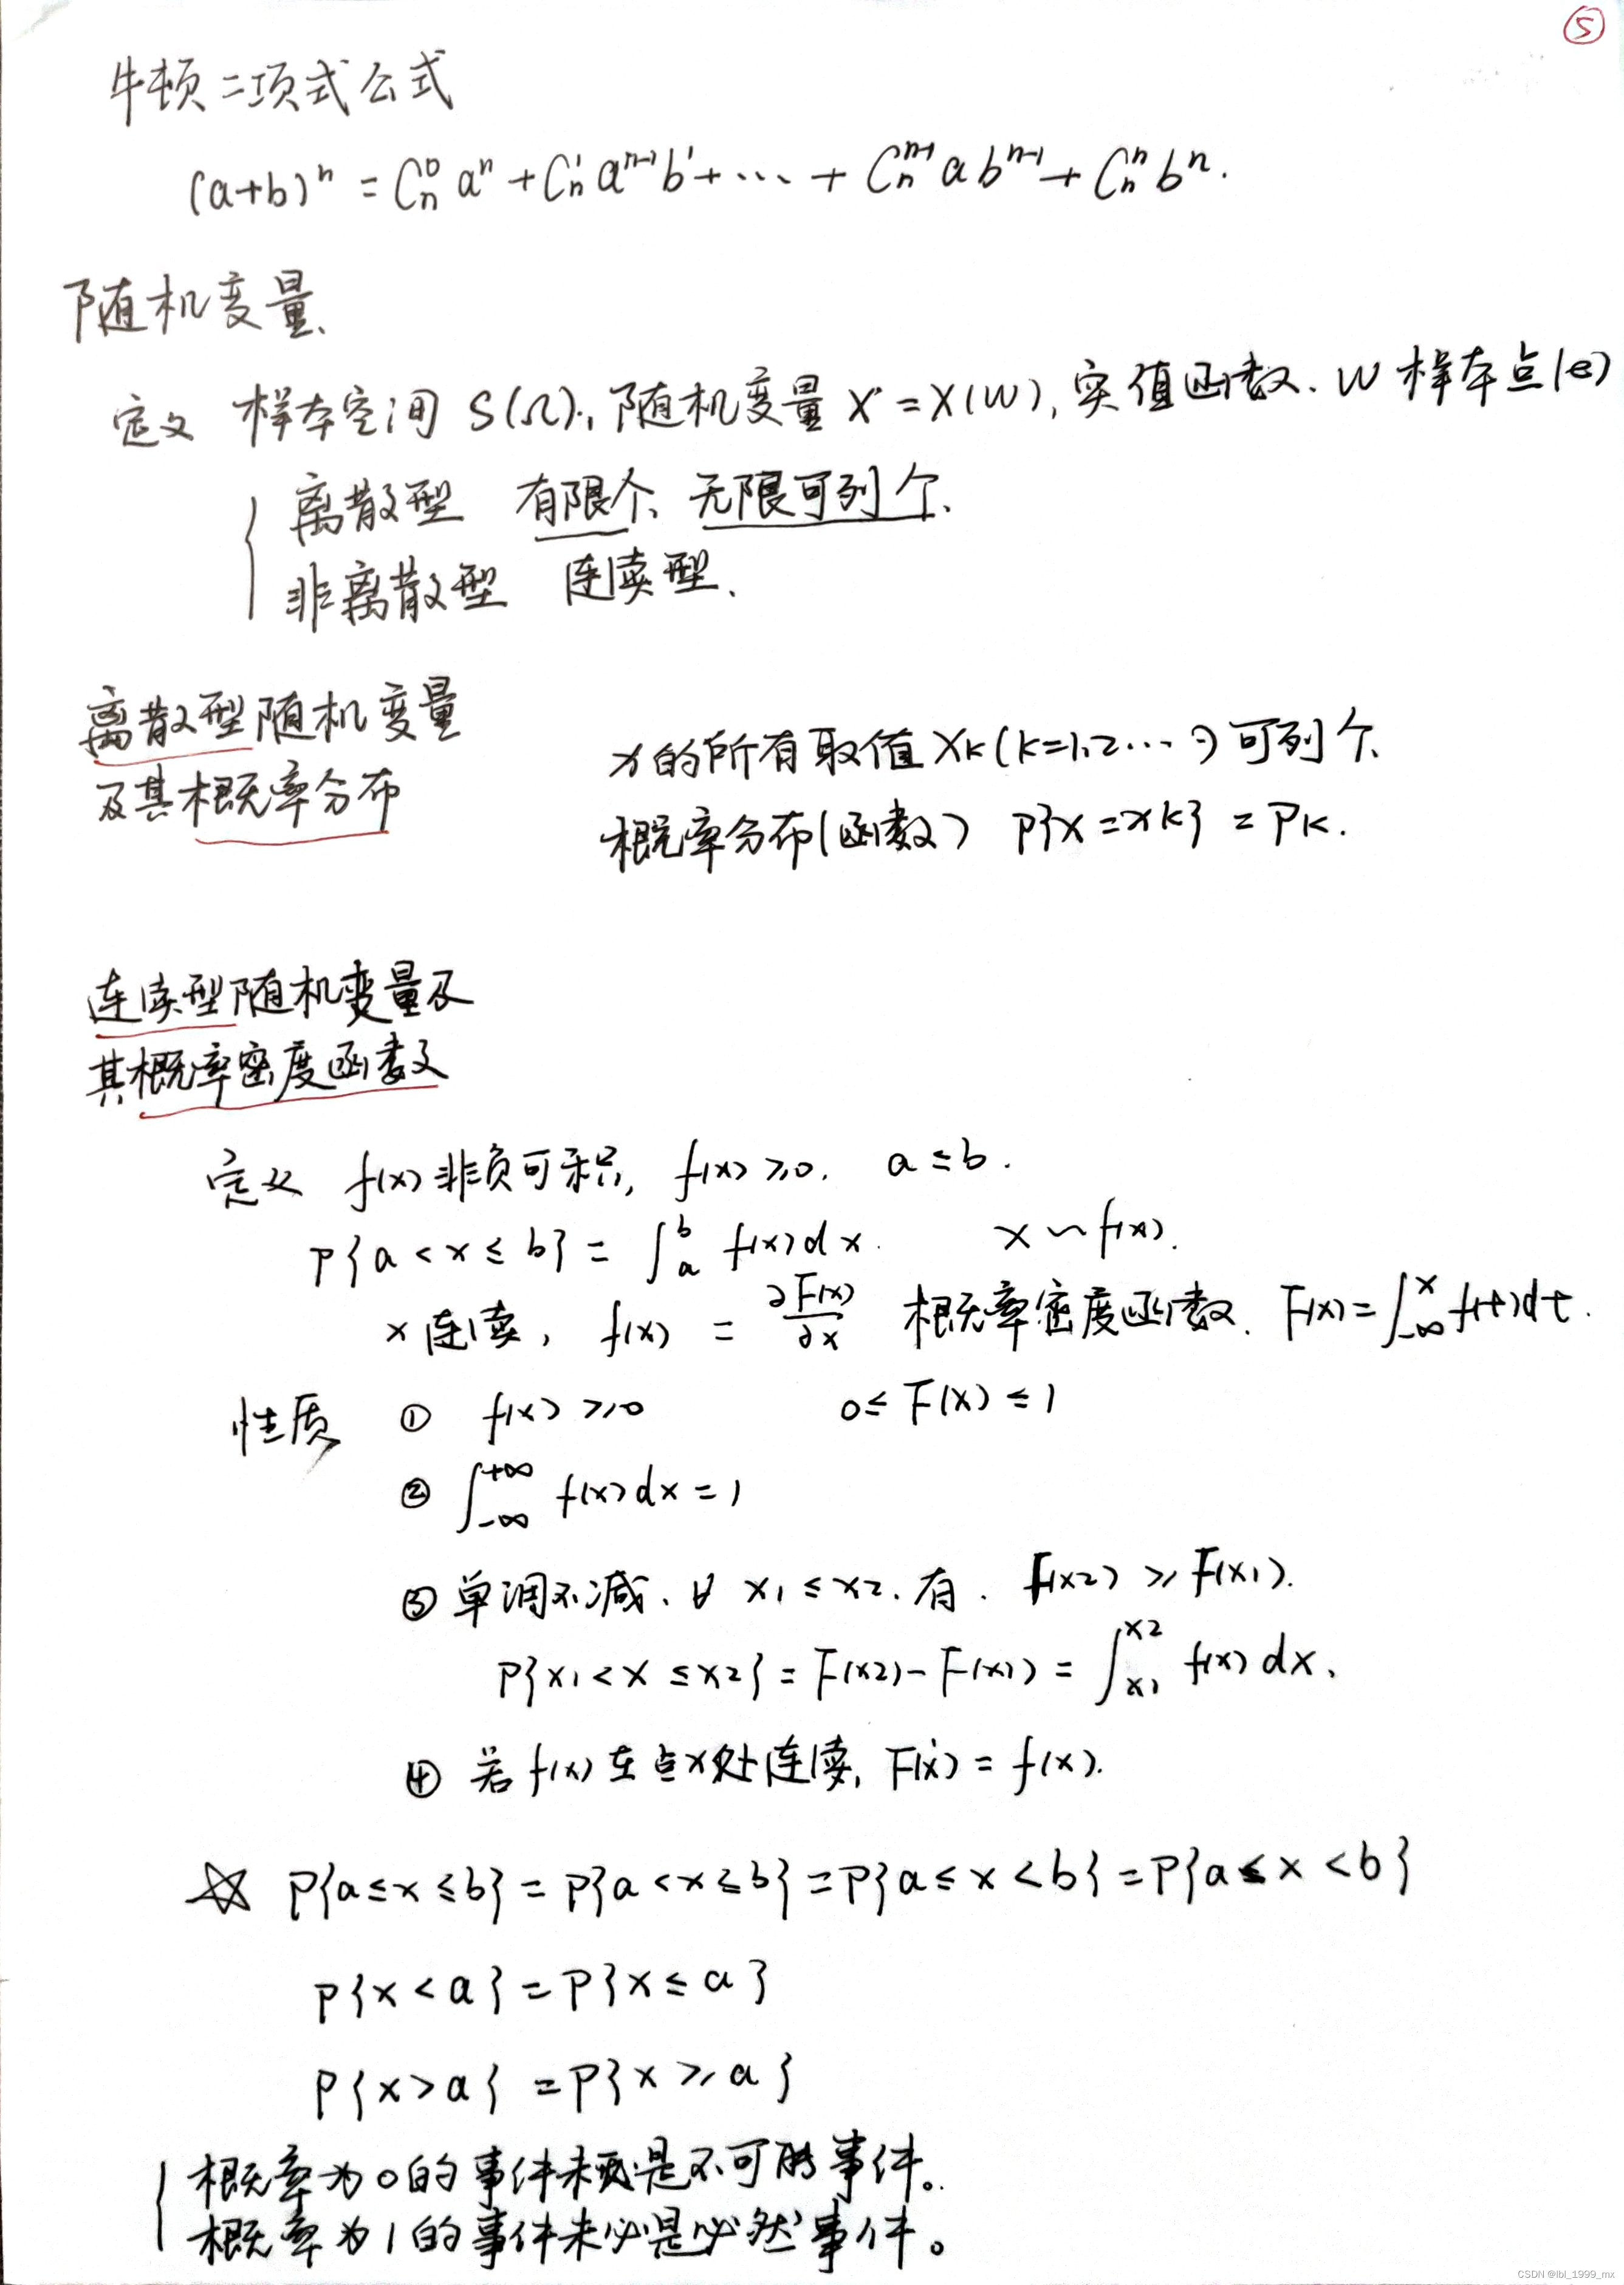 ⑤
牛顿二项式公式
(a+b)ⁿ = Cₙ⁰ aⁿ + Cₙ¹ aⁿ⁻¹ b¹ + ··· + Cₙⁿ⁻¹ a bⁿ⁻¹ + Cₙⁿ bⁿ.
随机变量、
定义 样本空间 S(Ω). 随机变量 X = X(W), 实值函数. W 样本点(e)
离散型 有限个、无限可列个、
非离散型 连续型、
离散型随机变量
及其概率分布
X的所有取值 Xk (k=1,2···) 可列个、
概率分布(函数) P{X=xk} = Pk.
连续型随机变量及
其概率密度函数
定义 f(x) 非负可积, f(x) ≥0. a ≤ b.
P{a < x ≤ b} = ∫ₐᵇ f(x)dx. X ~ f(x).
X 连续, f(x) = ∂F(x)/∂x 概率密度函数. F(x) = ∫₋∞ˣ f(t)dt.
性质 ① f(x) ≥0 0 ≤ F(x) ≤ 1
② ∫₋∞⁺∞ f(x)dx = 1
③ 单调不减、∀ x1 ≤ x2. 有. F(x2) ≥ F(x1).
P{x1 < X ≤ x2} = F(x2) - F(x1) = ∫ₓ₁ˣ² f(x) dx、
④ 若 f(x) 在点x处连续, F'(x) = f(x).
☆ P{a ≤ x ≤ b} = P{a < x ≤ b} = P{a ≤ x < b} = P{a ≤ x < b}
P{x < a} = P{x ≤ a}
P{x > a} = P{x ≥ a}
概率为0的事件未必是不可能事件。
概率为1的事件未必是必然事件。
CSDN @lbl_1999_mx